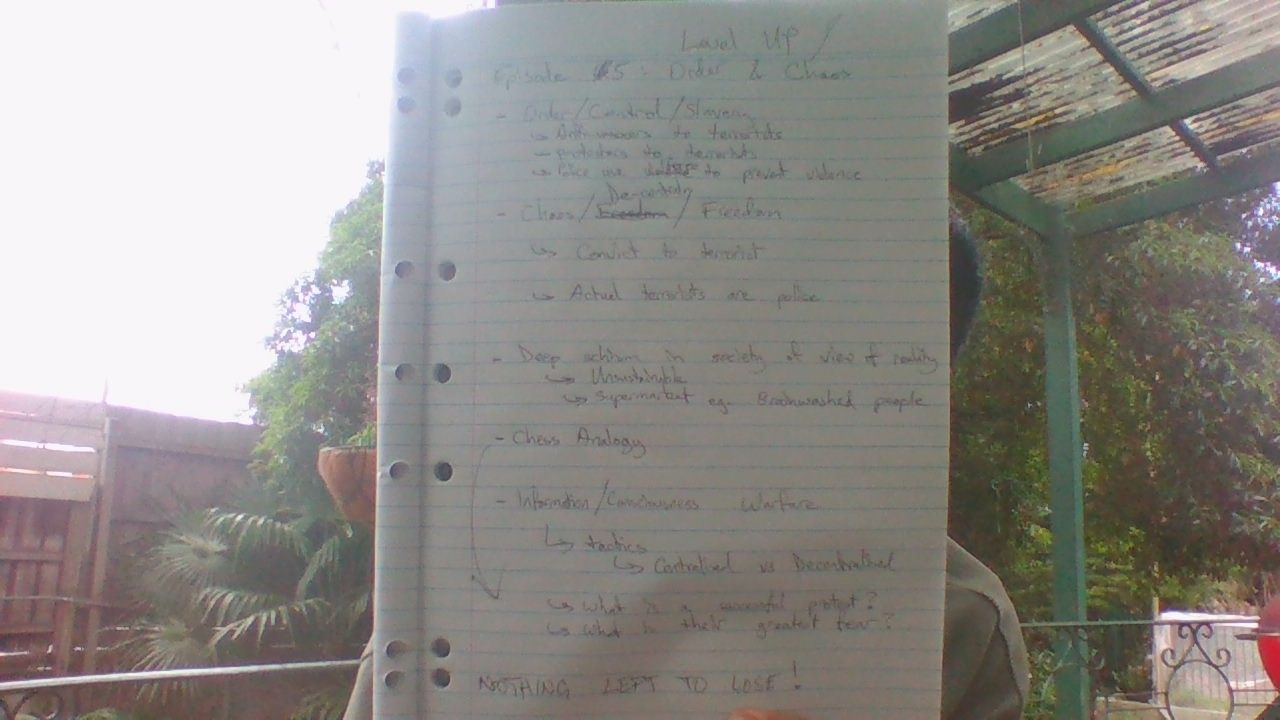 Level UP /
Episode 5: Order & Chaos
- Order/Control/Slavery
↳ Anti-maskers to terrorists
↳ protestors to terrorists
↳ Police use to prevent violence
De-centraliz
- Chaos/Freedom/ Freedom
↳ Convict to terrorist
↳ Actual terrorists are police
- Deep schism in society of view of reality
↳ Unsustainable
↳ Supermarket eg. Brainwashed people
- Chess Analogy
- Information/Consciousness Warfare
↳ tactics
↳ Centralised vs Decentralised
↳ what is a successful protest?
↳ what is their greatest fear?
NOTHING LEFT TO LOSE!